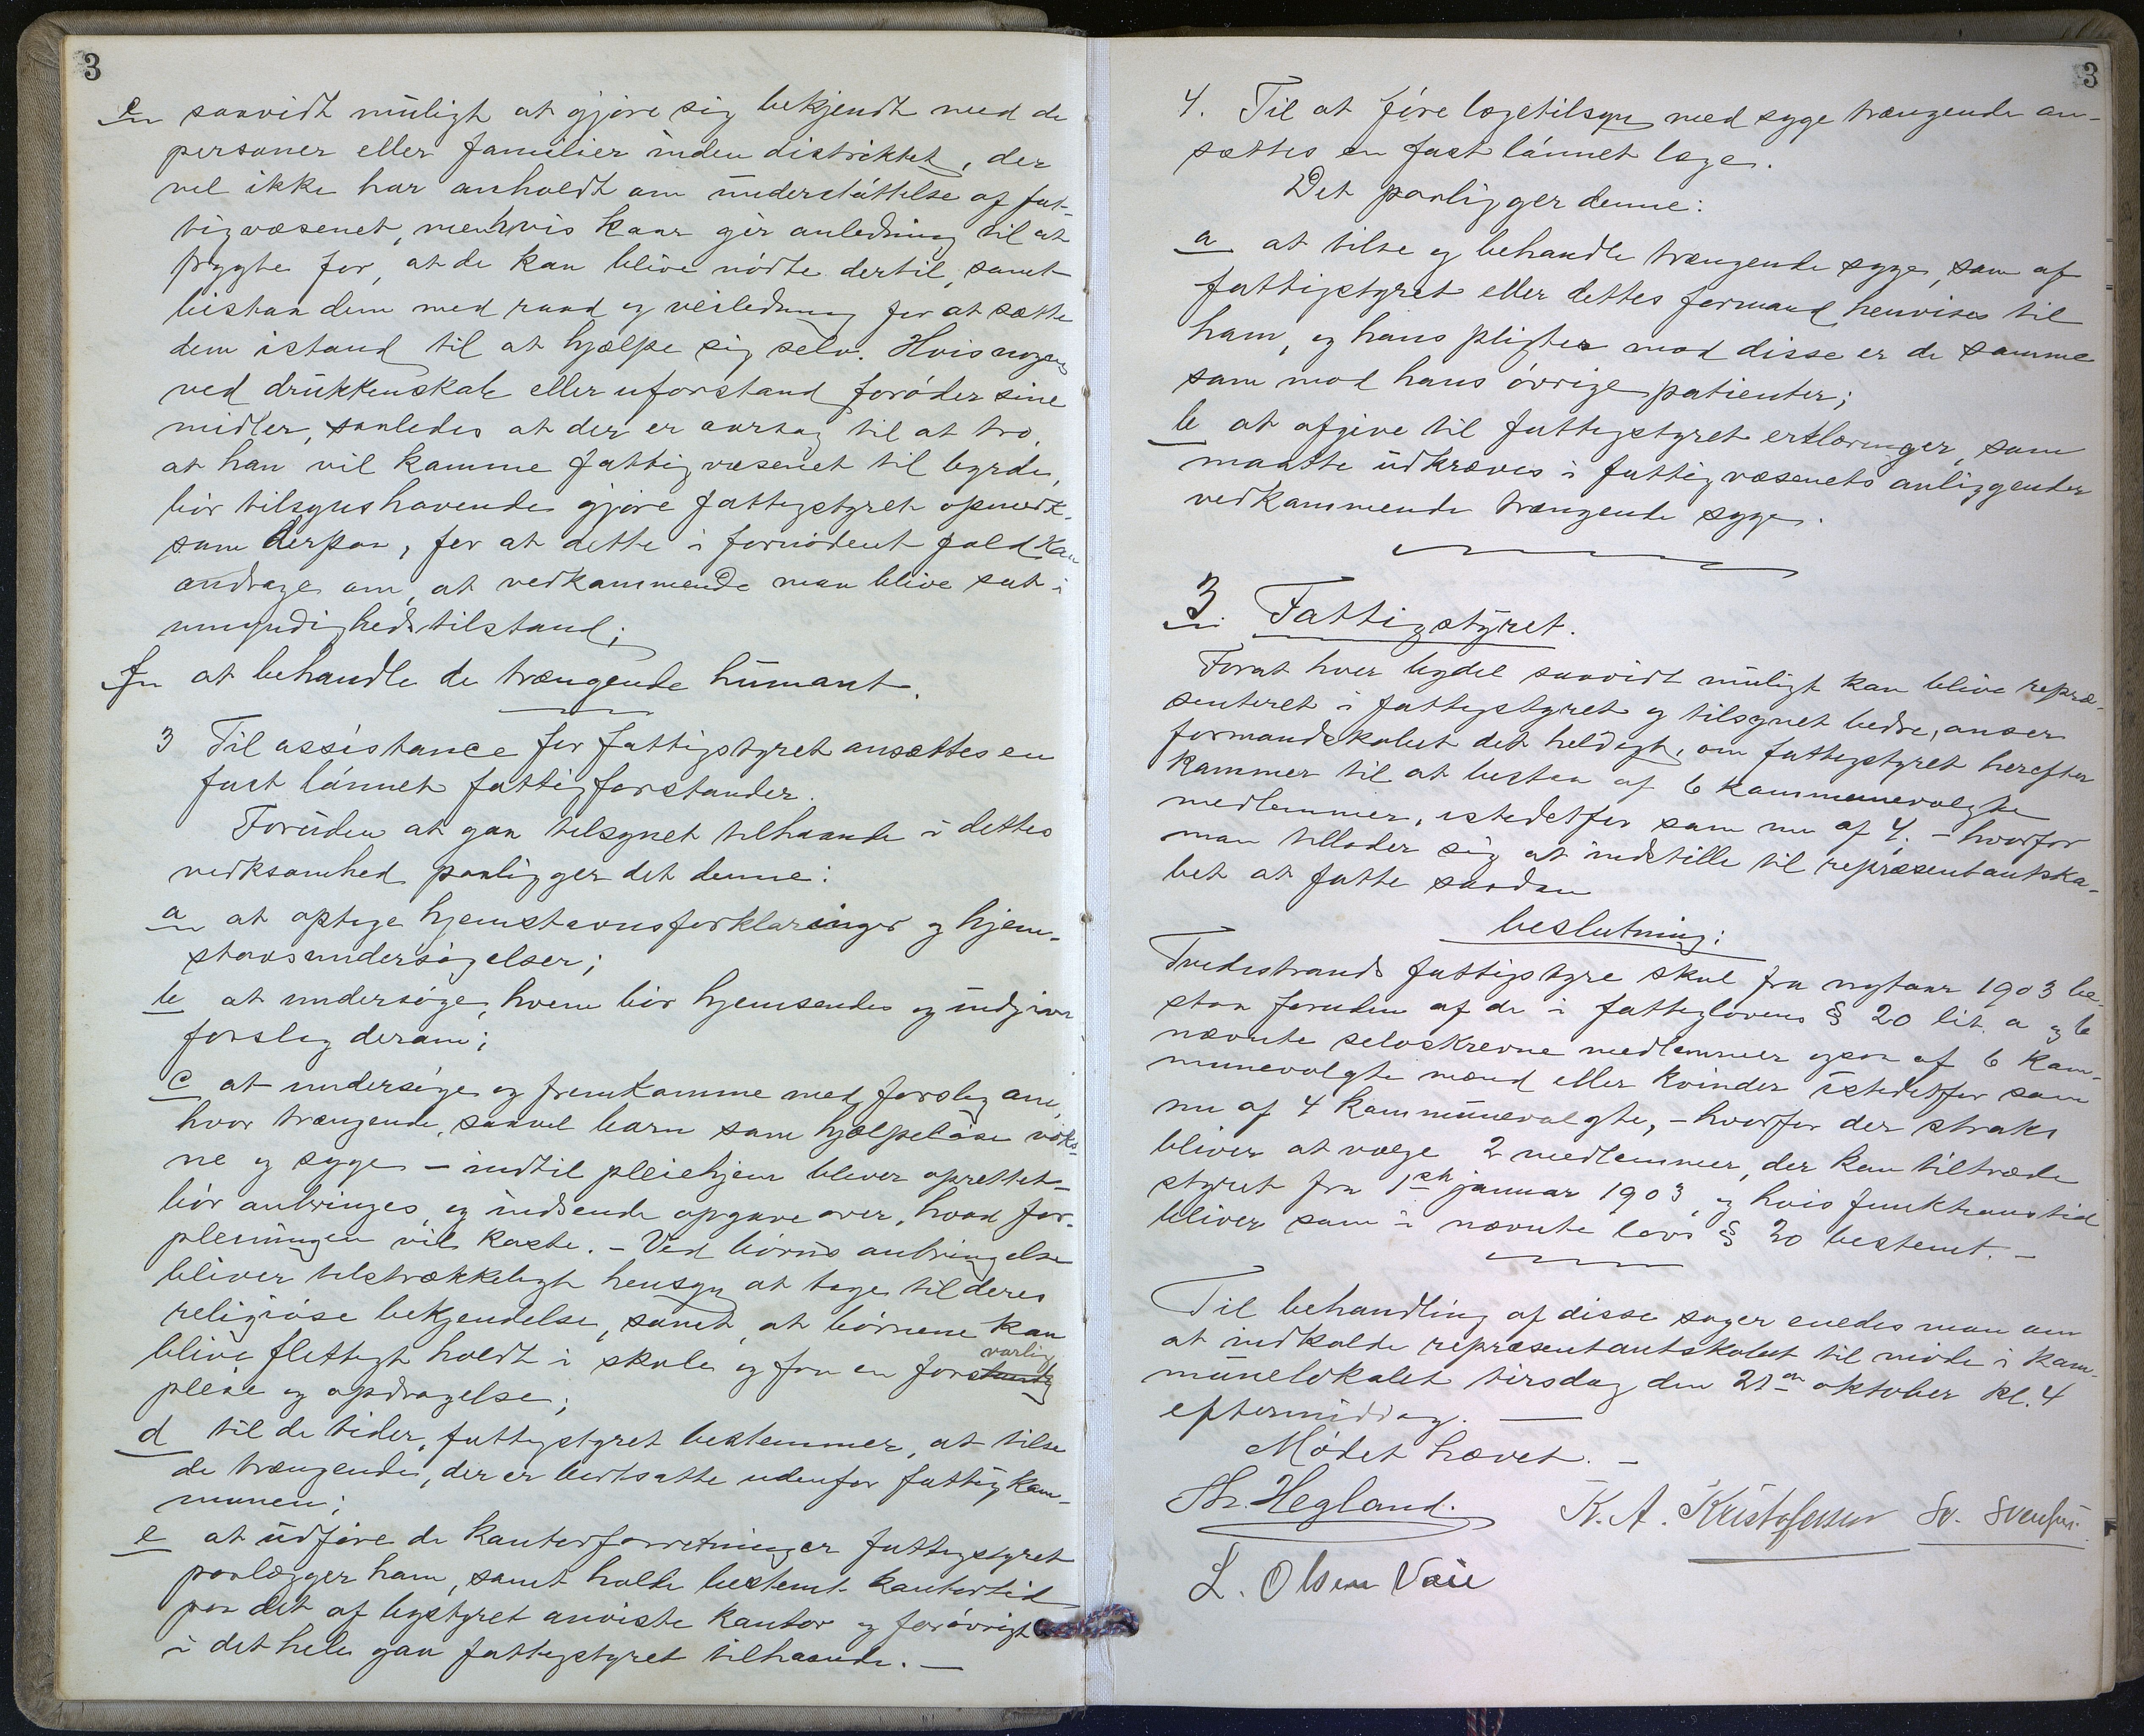 3
e saavidt muligt at gjøre sig bekjendt med de
personer eller familier inden distriktet, der
vel ikke har anholdt om understøttelse af fat-
tigvæsenet, men hvis kaar gir anledning til at
frygte for, at de kan blive nødte dertil, samt
bistaa dem med raad og veiledning for at sætte
dem istand til at hjælpe sig selv. Hvis nogen
ved drukkenskab eller uforstand forøder sine
midler, saaledes at der er aarsag til at tro,
at han vil komme fattigvæsenet til byrde,
bør tilsynshavende gjøre fattigstyret opmerk-
som derpaa, for at dette i fornødent fald kan
andrage om, at vedkommende maa blive sat i
umyndighedstilstand;
f at behandle de trængende humant.
3 Til assistance for fattigstyret ansættes en
fast lønnet fattigforstander.
Foruden at gaa tilsynet tilhaande i dettes
verksomhed paaligger det denne:
a at optage hjemstavnsforklaringer og hjem-
stavnsundersøgelser;
b at undersøge, hvem bør hjemsendes og indgive
forslag derom;
c at undersøge og fremkomme med forslag om,
hvor trængende, saavel barn som hjælpeløse voks-
ne og syge – indtil pleiehjem bliver oprettet –
bør anbringes, og indsende opgave over, hvad for-
pleiningen vil koste. – Ved børns anbringelse
bliver tilstrækkeligt hensyn at tage til deres
religiøse bekjendelse, samt, at børnene kan
blive flittigt holdt i skole og faa en forstandig
varlig
pleie og opdragelse;
d til de tider, fattigstyret bestemmer, at tilse
de trængende, der er bortsatte udenfor fattigkom-
munen;
e at udføre de kontorforretninger fattigstyret
paalægger ham, samt holde bestemt kontortid
paa det af bystyret anviste kontor og forøvrigt
i det hele gaa fattigstyret tilhaande. –
3
4. Til at føre lægetilsyn med syge trængende an-
sættes en fast lønnet læge.
Det paaligger denne:
a at tilse og behandle trængende syge, som af
fattigstyret eller dettes formand henvises til
ham, og hans pligter mod disse er de samme
som mod hans øvrige patienter;
b at afgive til fattigstyret erklæringer, som
maatte udkræves i fattigvæsenets anliggender
vedkommende trængende syge.
3. Fattigstyret.
Forat hver bydel saavidt muligt kan blive repræ-
senteret i fattigstyret og tilsynet bedre, anser
formandskabet det heldigt, om fattigstyret herefter
kommer til at bestaa af 6 kommunevalgte
medlemmer, istedetfor som nu af 4, – hvorfor
man tillader sig at indstille til repræsentantska-
bet at fatte saadan
beslutning:
Tvedestrands fattigstyre skal fra nytaar 1903 be-
staa foruden af de i fattiglovens § 20 lit. a og b
nævnte selvskrevne medlemmer ogsaa af 6 kom-
munevalgte mænd eller kvinder istedetfor som
nu af 4 kommunevalgte, – hvorfor der straks
bliver at vælge 2 medlemmer, der kan tiltræde
styret fra 1ste januar 1903, og hvis funktionstid
bliver som i nævnte lovs § 20 bestemt. –
Til behandling af disse sager enedes man om
at indkalde repræsentantskabet til møde i kom-
munelokalet tirsdag den 21de oktober kl. 4
eftermiddag. –
Mødet hævet. –
Th. Hegland. K. A. Kristofersen Sv. Svensen.
L. Olsen Vaie